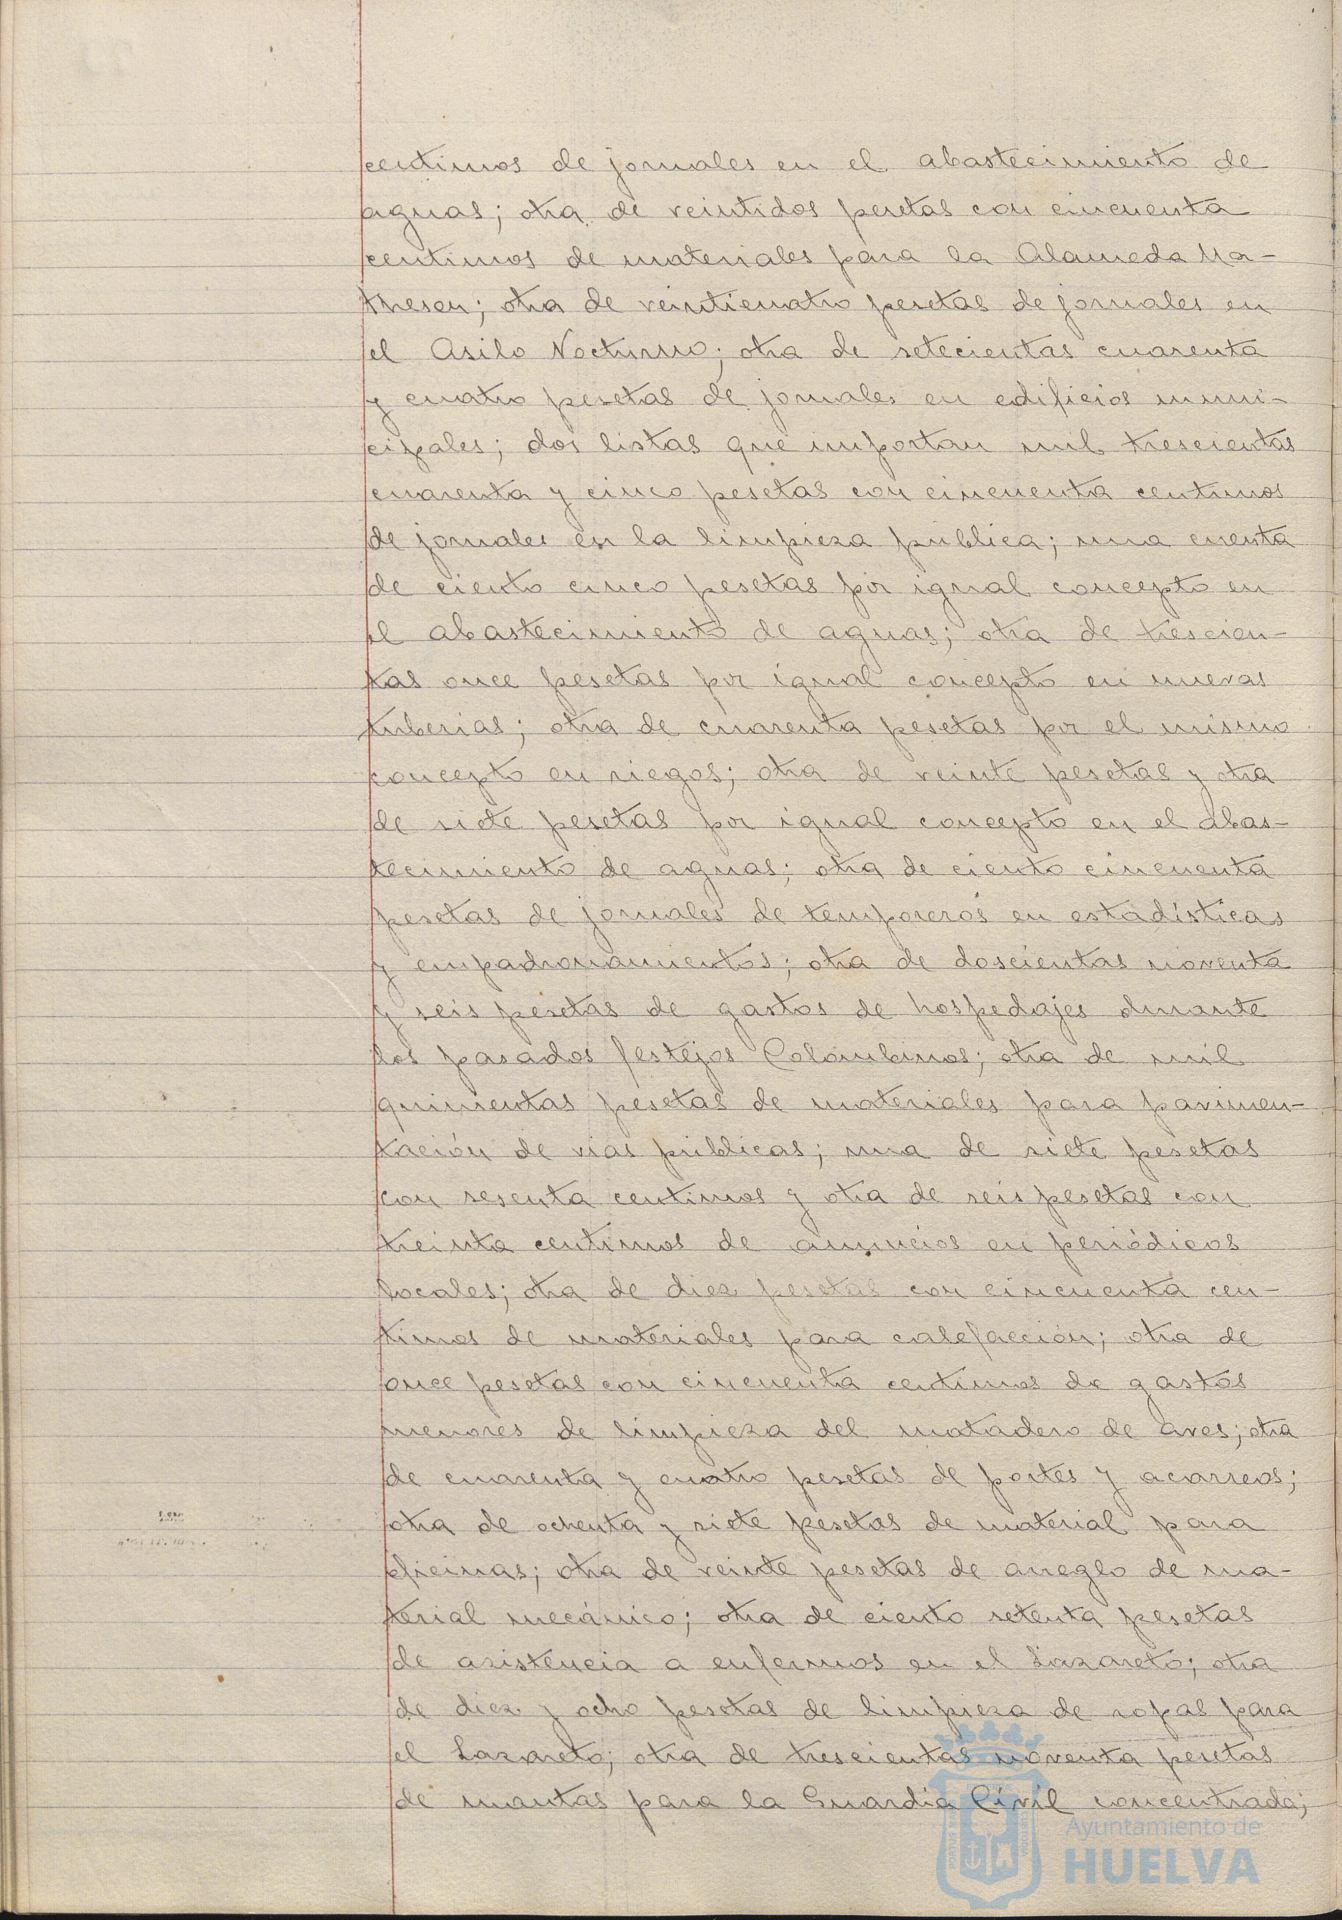 centimos de jornales en el abastecimiento de
aguas; otra de veintidos pesetas con cincuenta
centimos de materiales para la Alameda Ma-
thesen; otra de veinticuatro pesetas de jornales en
el Asilo Nocturno; otra de setecientas cuarenta
y cuatro pesetas de jornales en edificios muni-
cipales; dos listas que importan mil trescientas
cuarenta y cinco pesetas con cincuenta centimos
de jornales en la limpieza pública; una cuenta
de ciento cinco pesetas por igual concepto en
el abastecimiento de aguas; otra de trescien-
tas once pesetas por igual concepto en nuevas
tuberias; otra de cuarenta pesetas por el mismo
concepto en riegos; otra de veinte pesetas y otra
de siete pesetas por igual concepto en el abas-
tecimiento de aguas; otra de ciento cincuenta
pesetas de jornales de temporeros en estadísticas
y empadronamientos; otra de doscientas noventa
y seis pesetas de gastos de hospedajes durante
los pasados festejos Colombinos; otra de mil
quinientas pesetas de materiales para pavimen-
tación de vias públicas; una de siete pesetas
con sesenta centimos y otra de seis pesetas con
treinta centimos de anuncios en periódicos
locales; otra de diez pesetas con cincuenta cen-
timos de materiales para calefacción; otra de
once pesetas con cincuenta centimos de gastos
menores de limpieza del matadero de aves; otra
de cuarenta y cuatro pesetas de portes y acarreos;
otra de ochenta y siete pesetas de material para
oficinas; otra de veinte pesetas de arreglo de ma-
terial mecánico; otra de ciento setenta pesetas
de asistencia a enfermos en el Lazareto; otra
de diez y ocho pesetas de limpieza de ropas para
el Lazareto; otra de trescientas noventa pesetas
de mantas para la Guardia Civil concentrada;
Ayuntamiento de
HUELVA